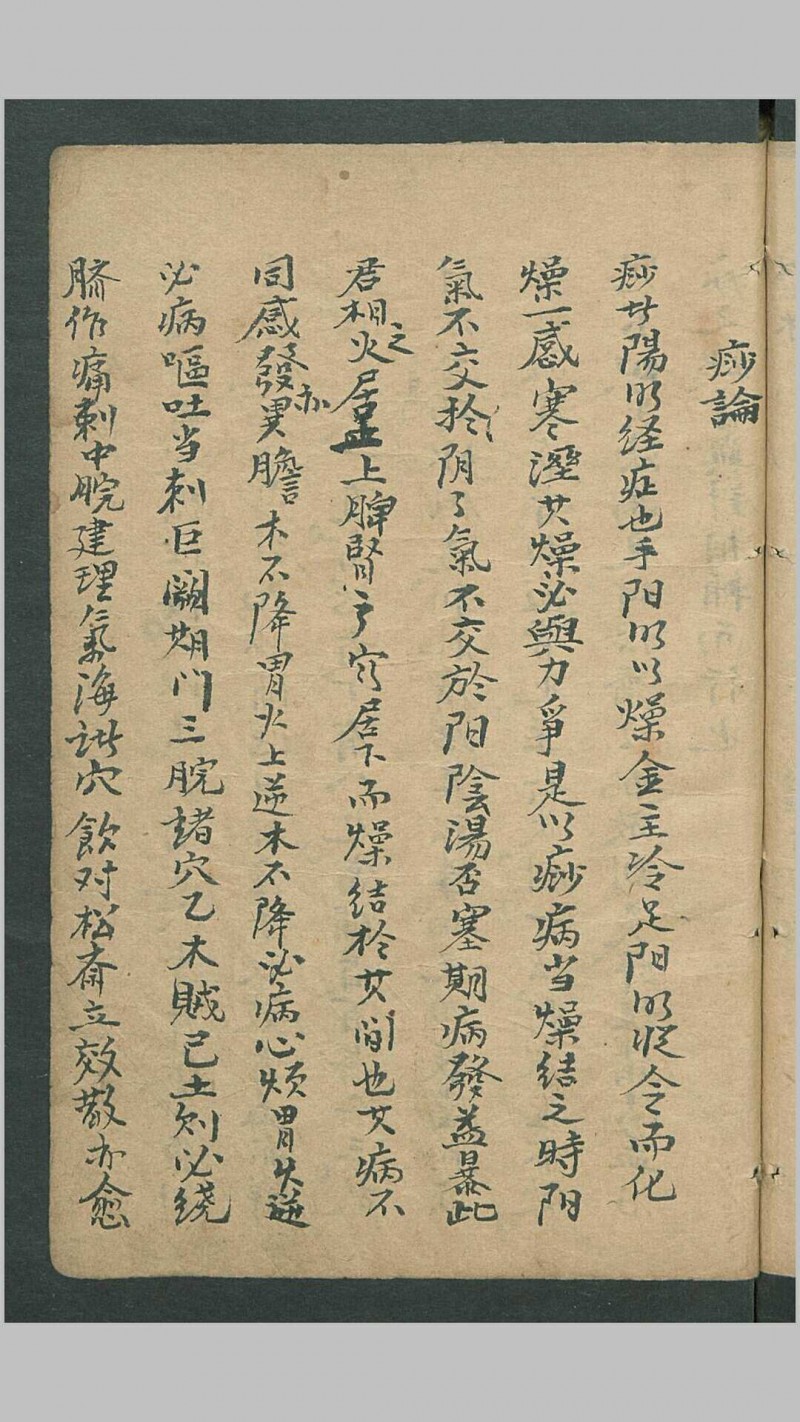 痧論
痧者陽明経症也手阳明以燥金主冷足阳明從令而化
燥一感寒溼其燥必與力爭是以痧病当燥結之時阳
氣不交扵阴々氣不交於阳陰湯否塞期病發益暴此
君相之火居上脾腎 居下而燥結扵其間也其病不
同感發亦異膽木不降胃火上逆木不降必病心煩胃失逆
必病嘔吐当刺巨闕期门三脘諸穴乙木賊己土则必绕
脐作痛刺中脘建理氣海諸穴飲对松斎立效散亦愈